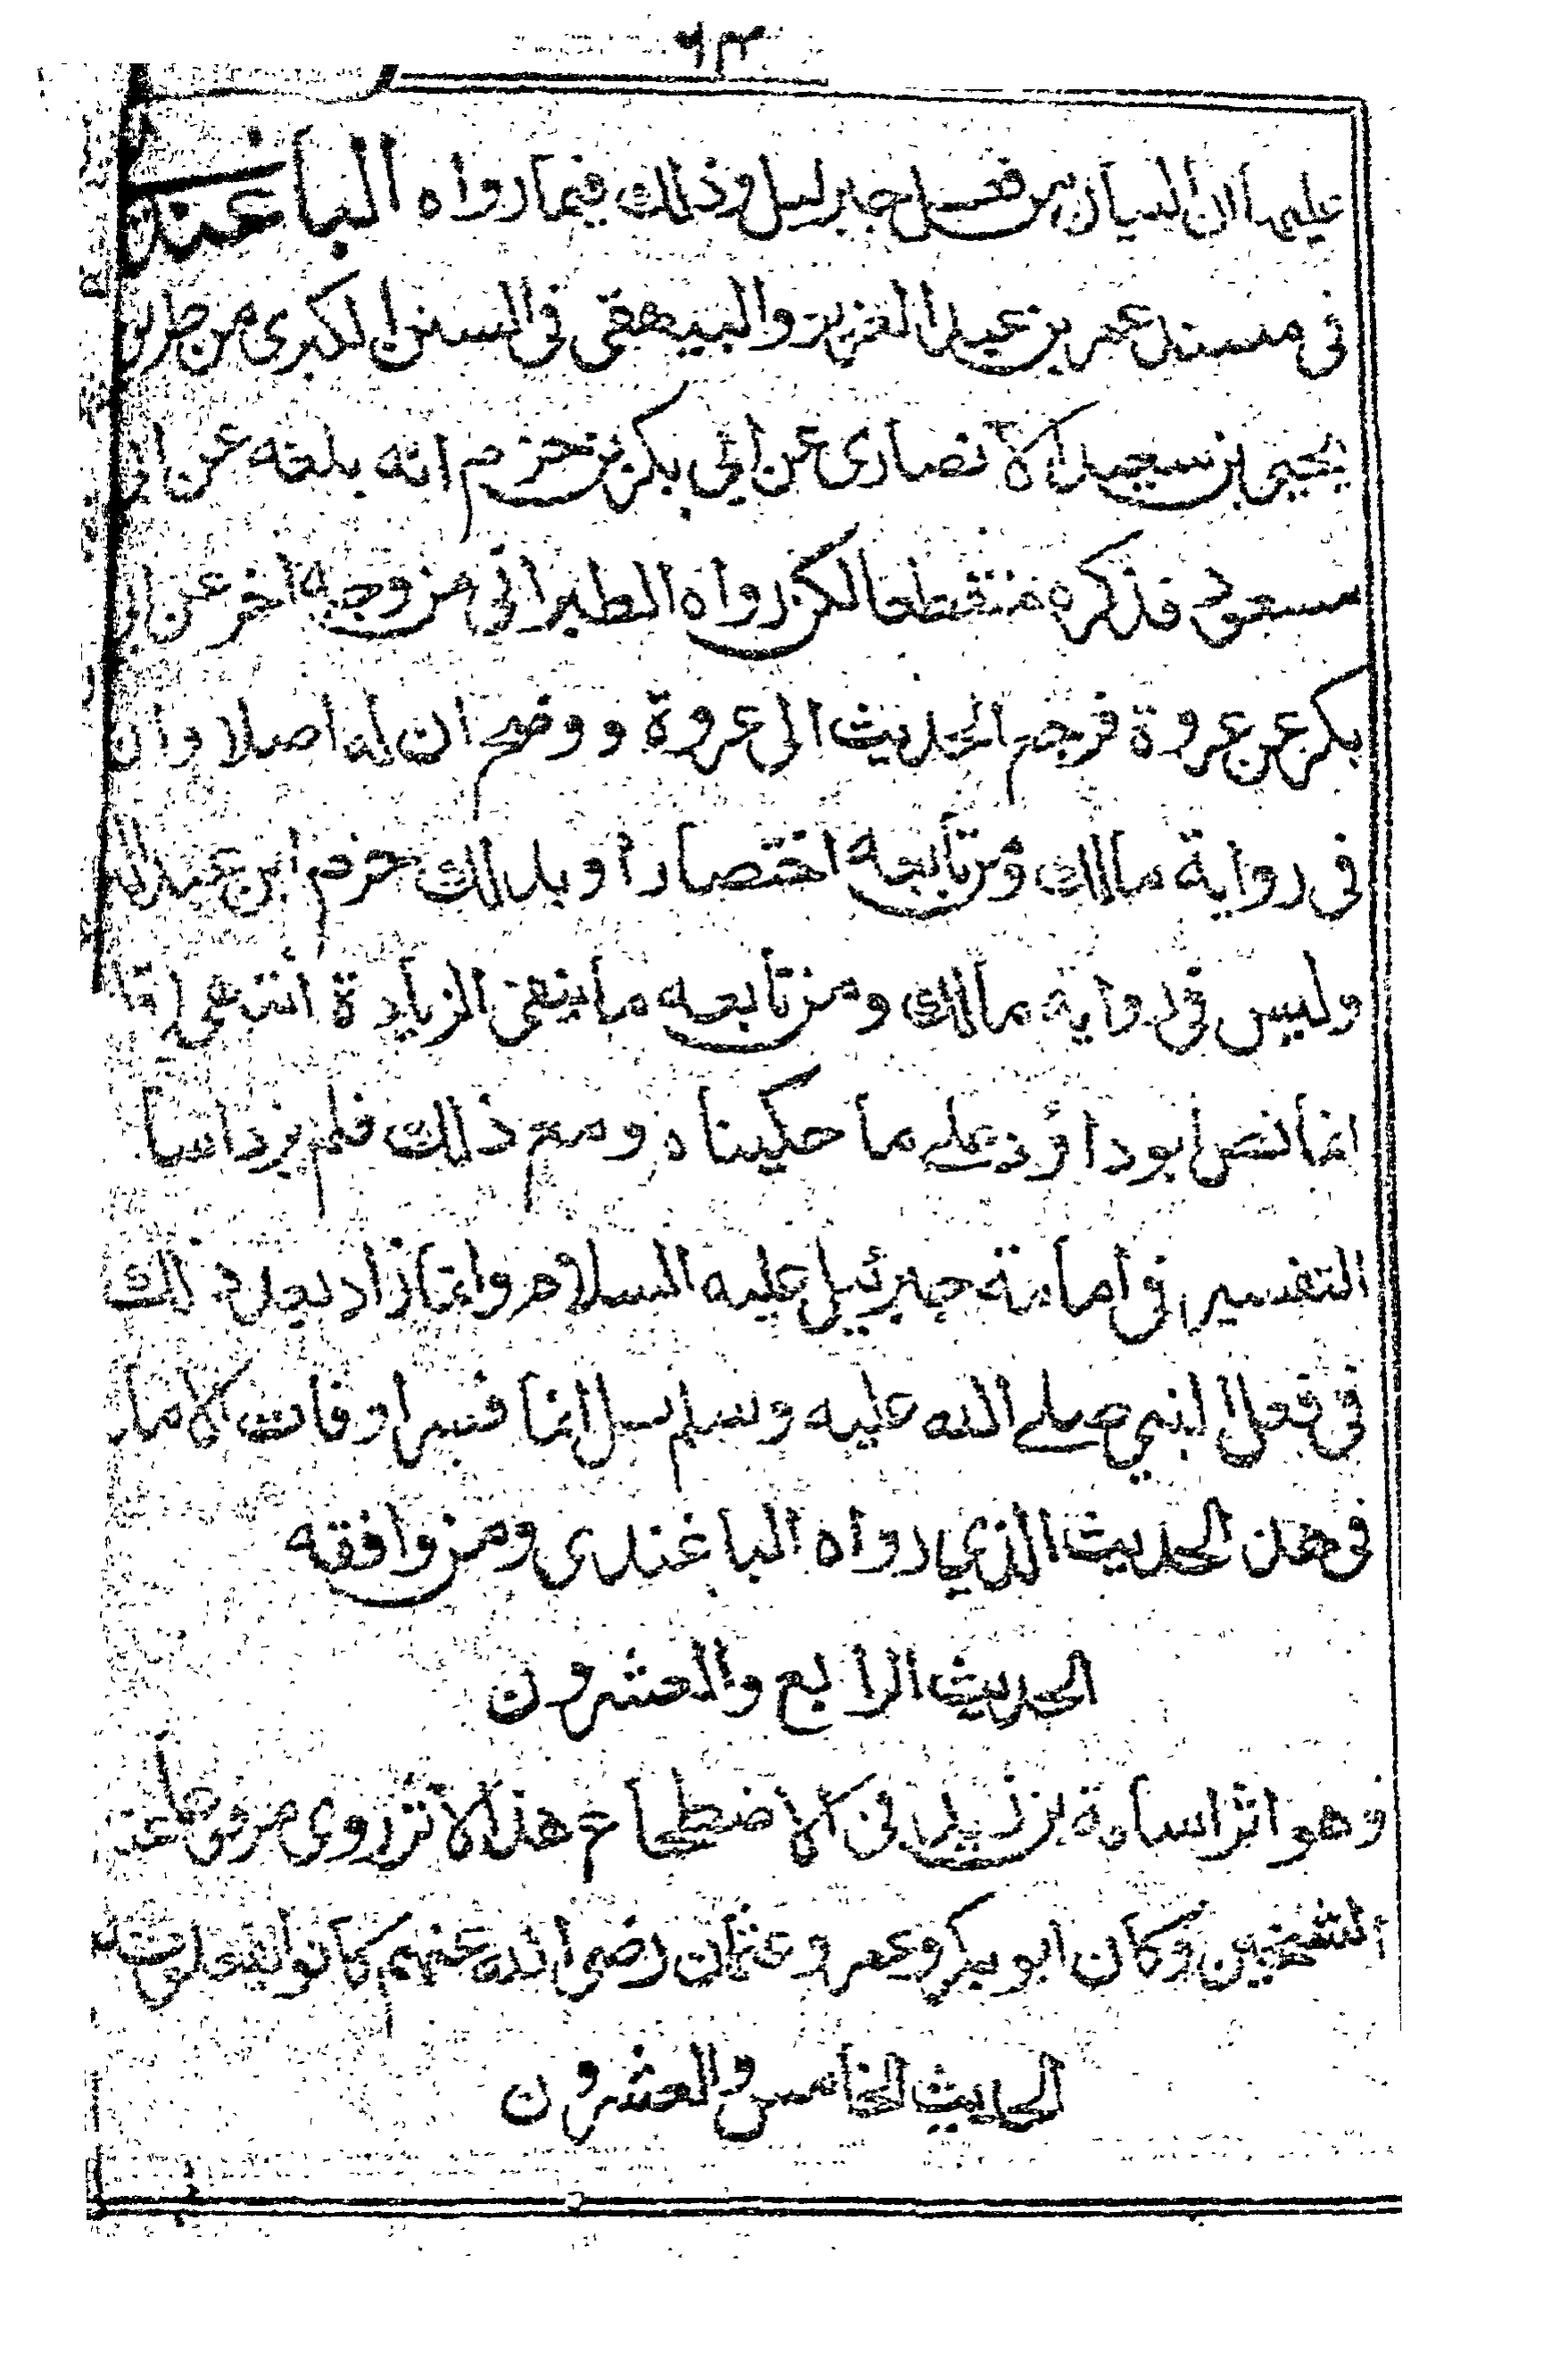 ۶۳
عليها لان البيان من فعل جبرئيل وذلك فيما رواه الباغندى
فى مسند عمر بن عبد العزيز والبيهقى فى السنن الكبرى من طريق
يحيى بن سعيد الانصارى عن ابى بكر بن حزم انه بلغه عن ابى
مسعود فذكره منقطعا لكن رواه الطبرانى من وجه اخر عن ابى
بكر عن عروة فرجع الحديث الى عروة و وضح ان له اصلا وان
فى رواية مالك ومن تابعه اختصارا وبذلك جزم ابن عبد البر
وليس فى رواية مالك ومن تابعه ما ينفى الزيادة انتهى
انما نص ابو داؤد على ما حكيناه ومع ذلك فلم يزد
التفسير فى امامة جبرئيل عليه السلام وانما زاد بعد ذلك
فى فعل النبي صلى الله عليه وسلم بل انما فسر اوقات
فى هذا الحديث الذي رواه الباغندى ومن وافقه
الحديث الرابع والعشرون
وهو اثر اسامة بن زيد فى الاضطجاع هذا الاثر روى
الشيخين وكان ابو بكر وعمر وعثمان رضى الله عنهم كانوا
الحديث الخامس والعشرون